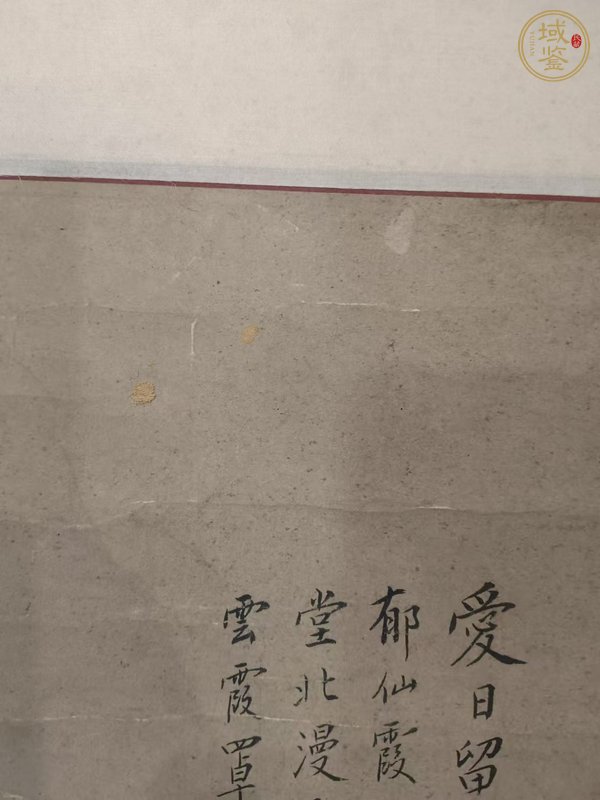 愛日留
郁仙霞
堂北漫
雲霞罩
域鉴
YUJIAN